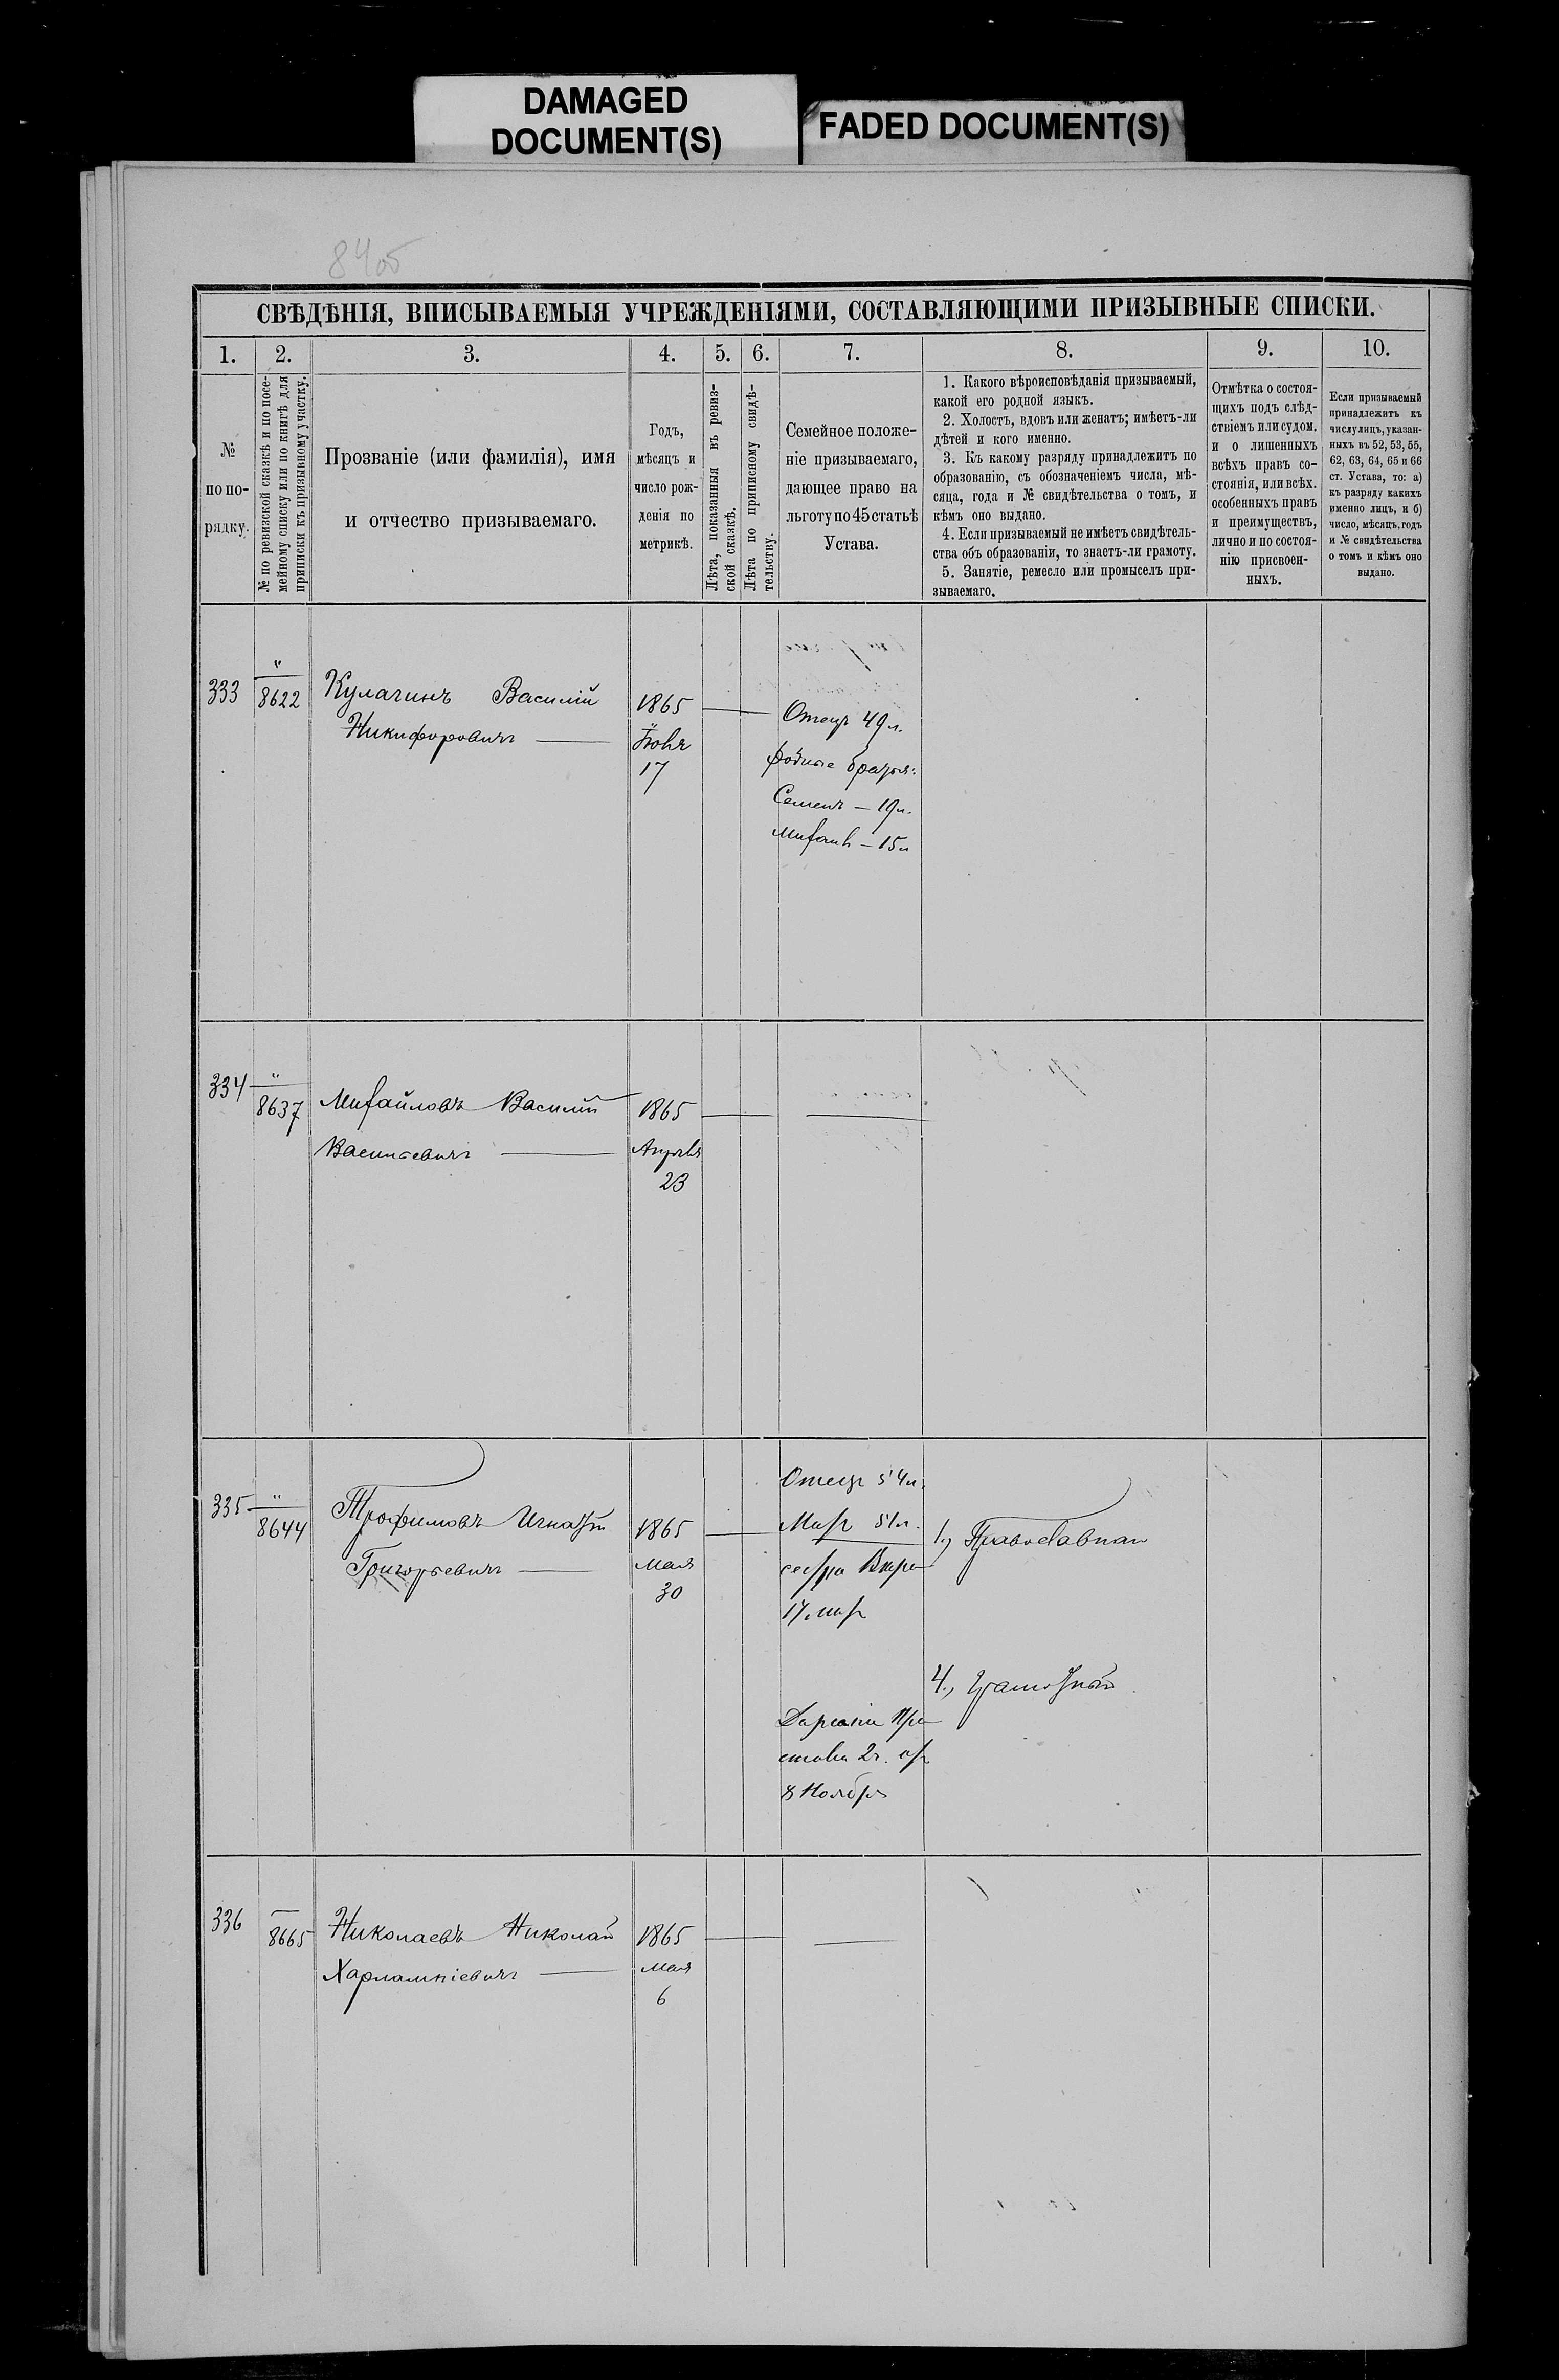 DAMAGED
DOCUMENT(S)
FADED DOCUMENT(S)
84об
СВѢДѢНІЯ, ВПИСЫВАЕМЫЯ УЧРЕЖДЕНІЯМИ, СОСТАВЛЯЮЩИМИ ПРИЗЫВНЫЕ СПИСКИ.
1.
№
по по-
рядку.
2.
№ по ревизской сказкѣ и по посе-
мейному списку или по книгѣ для
приписки къ призывному участку.
3.
Прозваніе (или фамилія), имя
и отчество призываемаго.
4.
Годъ,
мѣсяцъ и
число рож-
денія по
метрикѣ.
5.
Лѣта, показанныя въ ревиз-
ской сказкѣ.
6.
Лѣта по приписному свидѣ-
тельству.
7.
Семейное положе-
ніе призываемаго,
дающее право на
льготу по 45 статьѣ
Устава.
8.
1. Какого вѣроисповѣданія призываемый,
какой его родной языкъ.
2. Холостъ, вдовъ или женатъ; имѣетъ-ли
дѣтей и кого именно.
3. Къ какому разряду принадлежитъ по
образованію, съ обозначеніемъ числа, мѣ-
сяца, года и № свидѣтельства о томъ, и
кѣмъ оно выдано.
4. Если призываемый не имѣетъ свидѣтель-
ства объ образованіи, то знаетъ-ли грамоту.
5. Занятіе, ремесло или промыселъ при-
зываемаго.
9.
Отмѣтка о состоя-
щихъ подъ слѣд-
ствіемъ или судом.
и о лишенныхъ
всѣхъ правъ со-
стоянія, или всѣх.
особенныхъ правъ
и преимуществъ,
лично и по состоя-
нію присвоен-
ныхъ.
10.
Если призываемый
принадлежитъ къ
числу лицъ, указан-
ныхъ въ 52, 53, 55,
62, 63, 64, 65 и 66
ст. Устава, то: а)
къ разряду какихъ
именно лицъ, и б)
число, мѣсяцъ, годъ
и № свидѣтельства
о томъ и кѣмъ оно
выдано.
333
"
8622
Кулагинъ Василій
Никифоровичъ
1865
Іюня
17
Отецъ 49 л.
родные братья:
Семенъ — 19 л.
Михаилъ — 15 л
334
"
8637
Михайловъ Василій
Васильевичъ
1865
Апрѣля
23
335
"
8644
Трофимовъ Игнатій
Григорьевичъ
1865
Мая
30
Отецъ 54 л.
Мать 51 л.
сестра
17
2 г.
8 Ноября
1., Православнаго
4., Грамотный
336
8665
Николаевъ Николай
Харлампіевичъ
1865
Мая
6